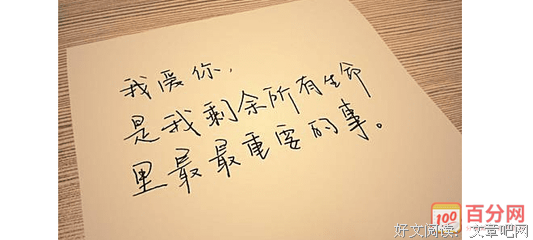 我爱你，
是我剩余所有生命
里最最重要的事。
100 百分网
好文阅读： 文章吧网